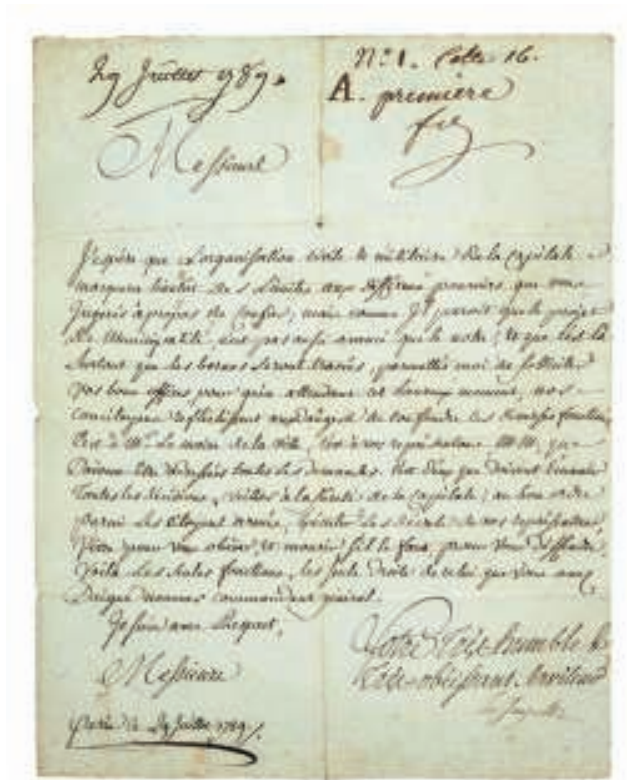 29 Juillet 1789.
N.º 1. Cotte 16.
A. première
Messieurs
J'espère que l'organisation civile & militaire de la Capitale
marquera bientôt des limites aux différens pouvoirs que vous
jugerés à propos de confier, mais comme Il paroit que le projet
de Municipalité n'est pas aussi avancé que le notre, & que c'est là
surtout que les bornes seront tracées, permettés moi de solliciter
vos bons offices pour qu'en attendant cet heureux moment, nos
concitoyens réfléchissent au danger de confondre les diverses fonctions
C'est à Mr. Le maire de la ville, c'est à vos représentans MM, que
doivent être adressées toutes les demandes. C'est d'eux que doivent émaner
Toutes les décisions, veiller à la sureté de la Capitale, au bon ordre
parmi les citoyens armés, exécuter les décrets de vos représentans,
vivre pour vous obéir, & mourir s'il le faut, pour vous deffendre,
voilà les seules fonctions, les seuls droits de celui que vous avez
daigné nommer commandant général.
Je suis avec Respect,
Messieurs
Votre très humble &
très obéissant Serviteur
Lafayette
Paris le 29 Juillet, 1789.